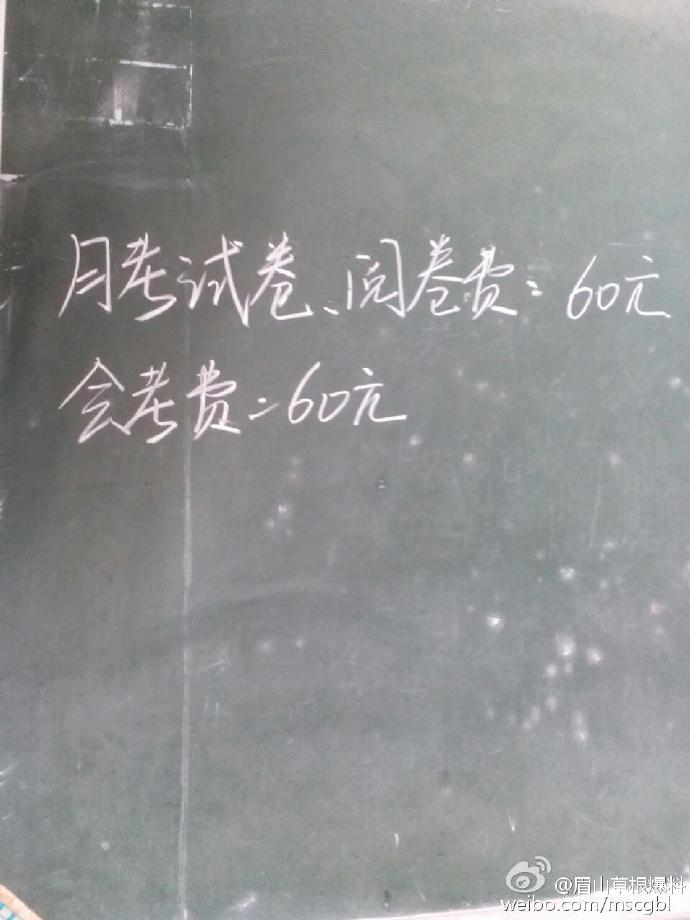 月考试卷、阅卷费=60元
会考费=60元
@眉山草根爆料
weibo.com/mscgbl